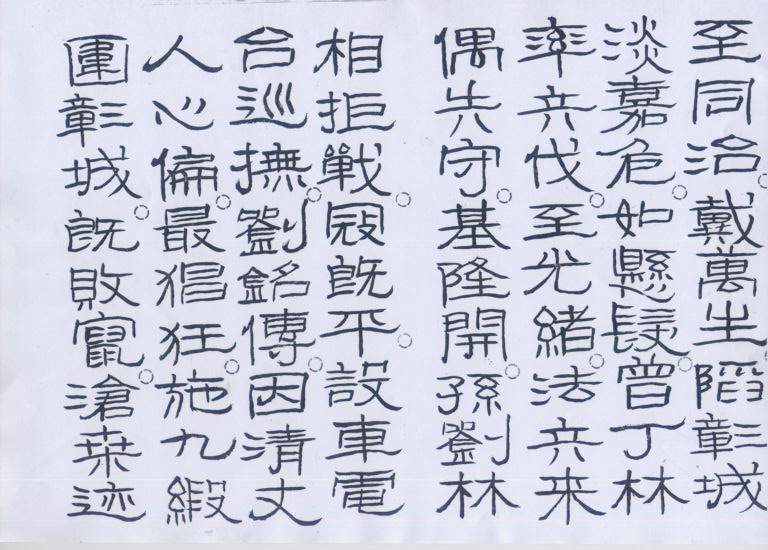 至同治戴萬生陷彰城
淡嘉危如懸髮曾丁林
率兵伐至光緒法兵来
偶失守基隆開孫劉林
相拒戰冦既平設車電
台巡撫劉銘傳因清丈
人心偏最猖狂施九緞
圍彰城既敗竄滄桒迹